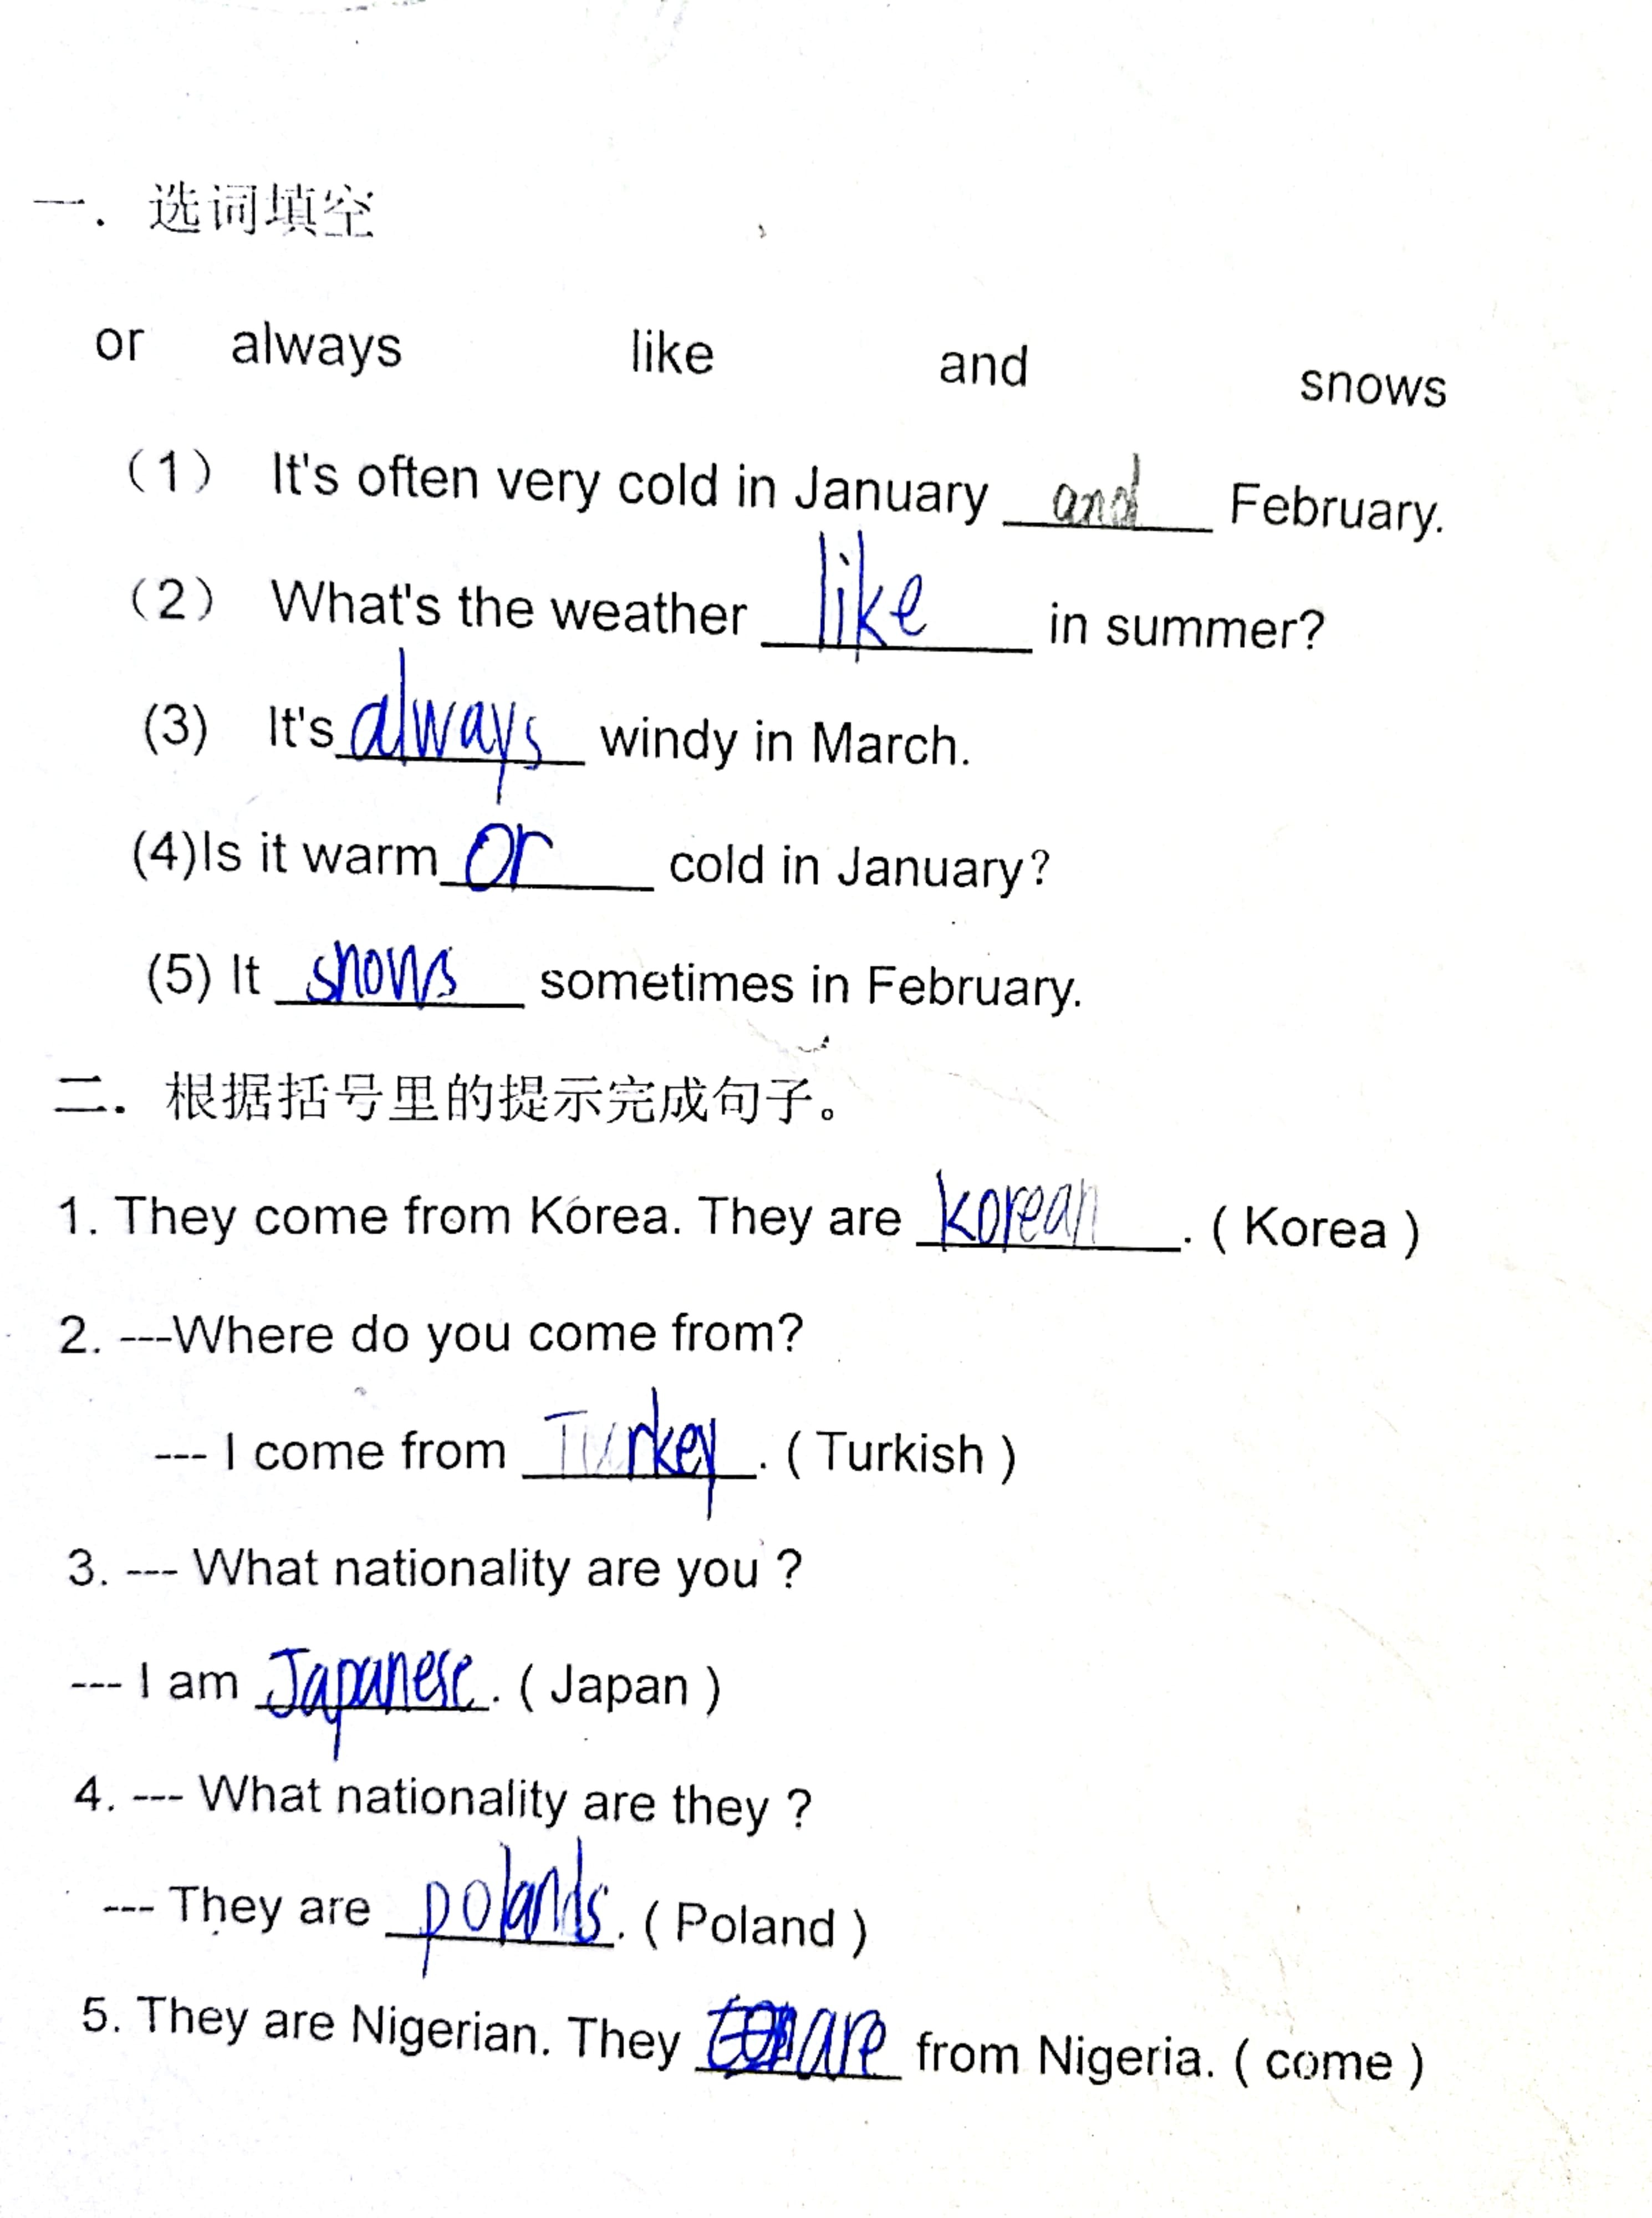 一. 选词填空
or always like and snows
（1） It's often very cold in January and February.
（2） What's the weather like in summer?
(3) It's always windy in March.
(4)Is it warm or cold in January?
(5) It snows sometimes in February.
二. 根据括号里的提示完成句子。
1. They come from Korea. They are korean. ( Korea )
2. ---Where do you come from?
--- I come from Turkey. ( Turkish )
3. --- What nationality are you ?
--- I am Japanese. ( Japan )
4. --- What nationality are they ?
--- They are polands. ( Poland )
5. They are Nigerian. They are from Nigeria. ( come )